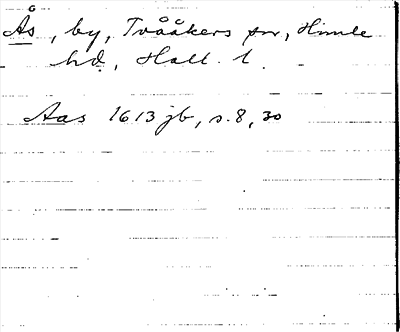 Ås, by, Tvååkers sn, Himle
hd, Hall. l.
Aas 1613 jb, s. 8, 30